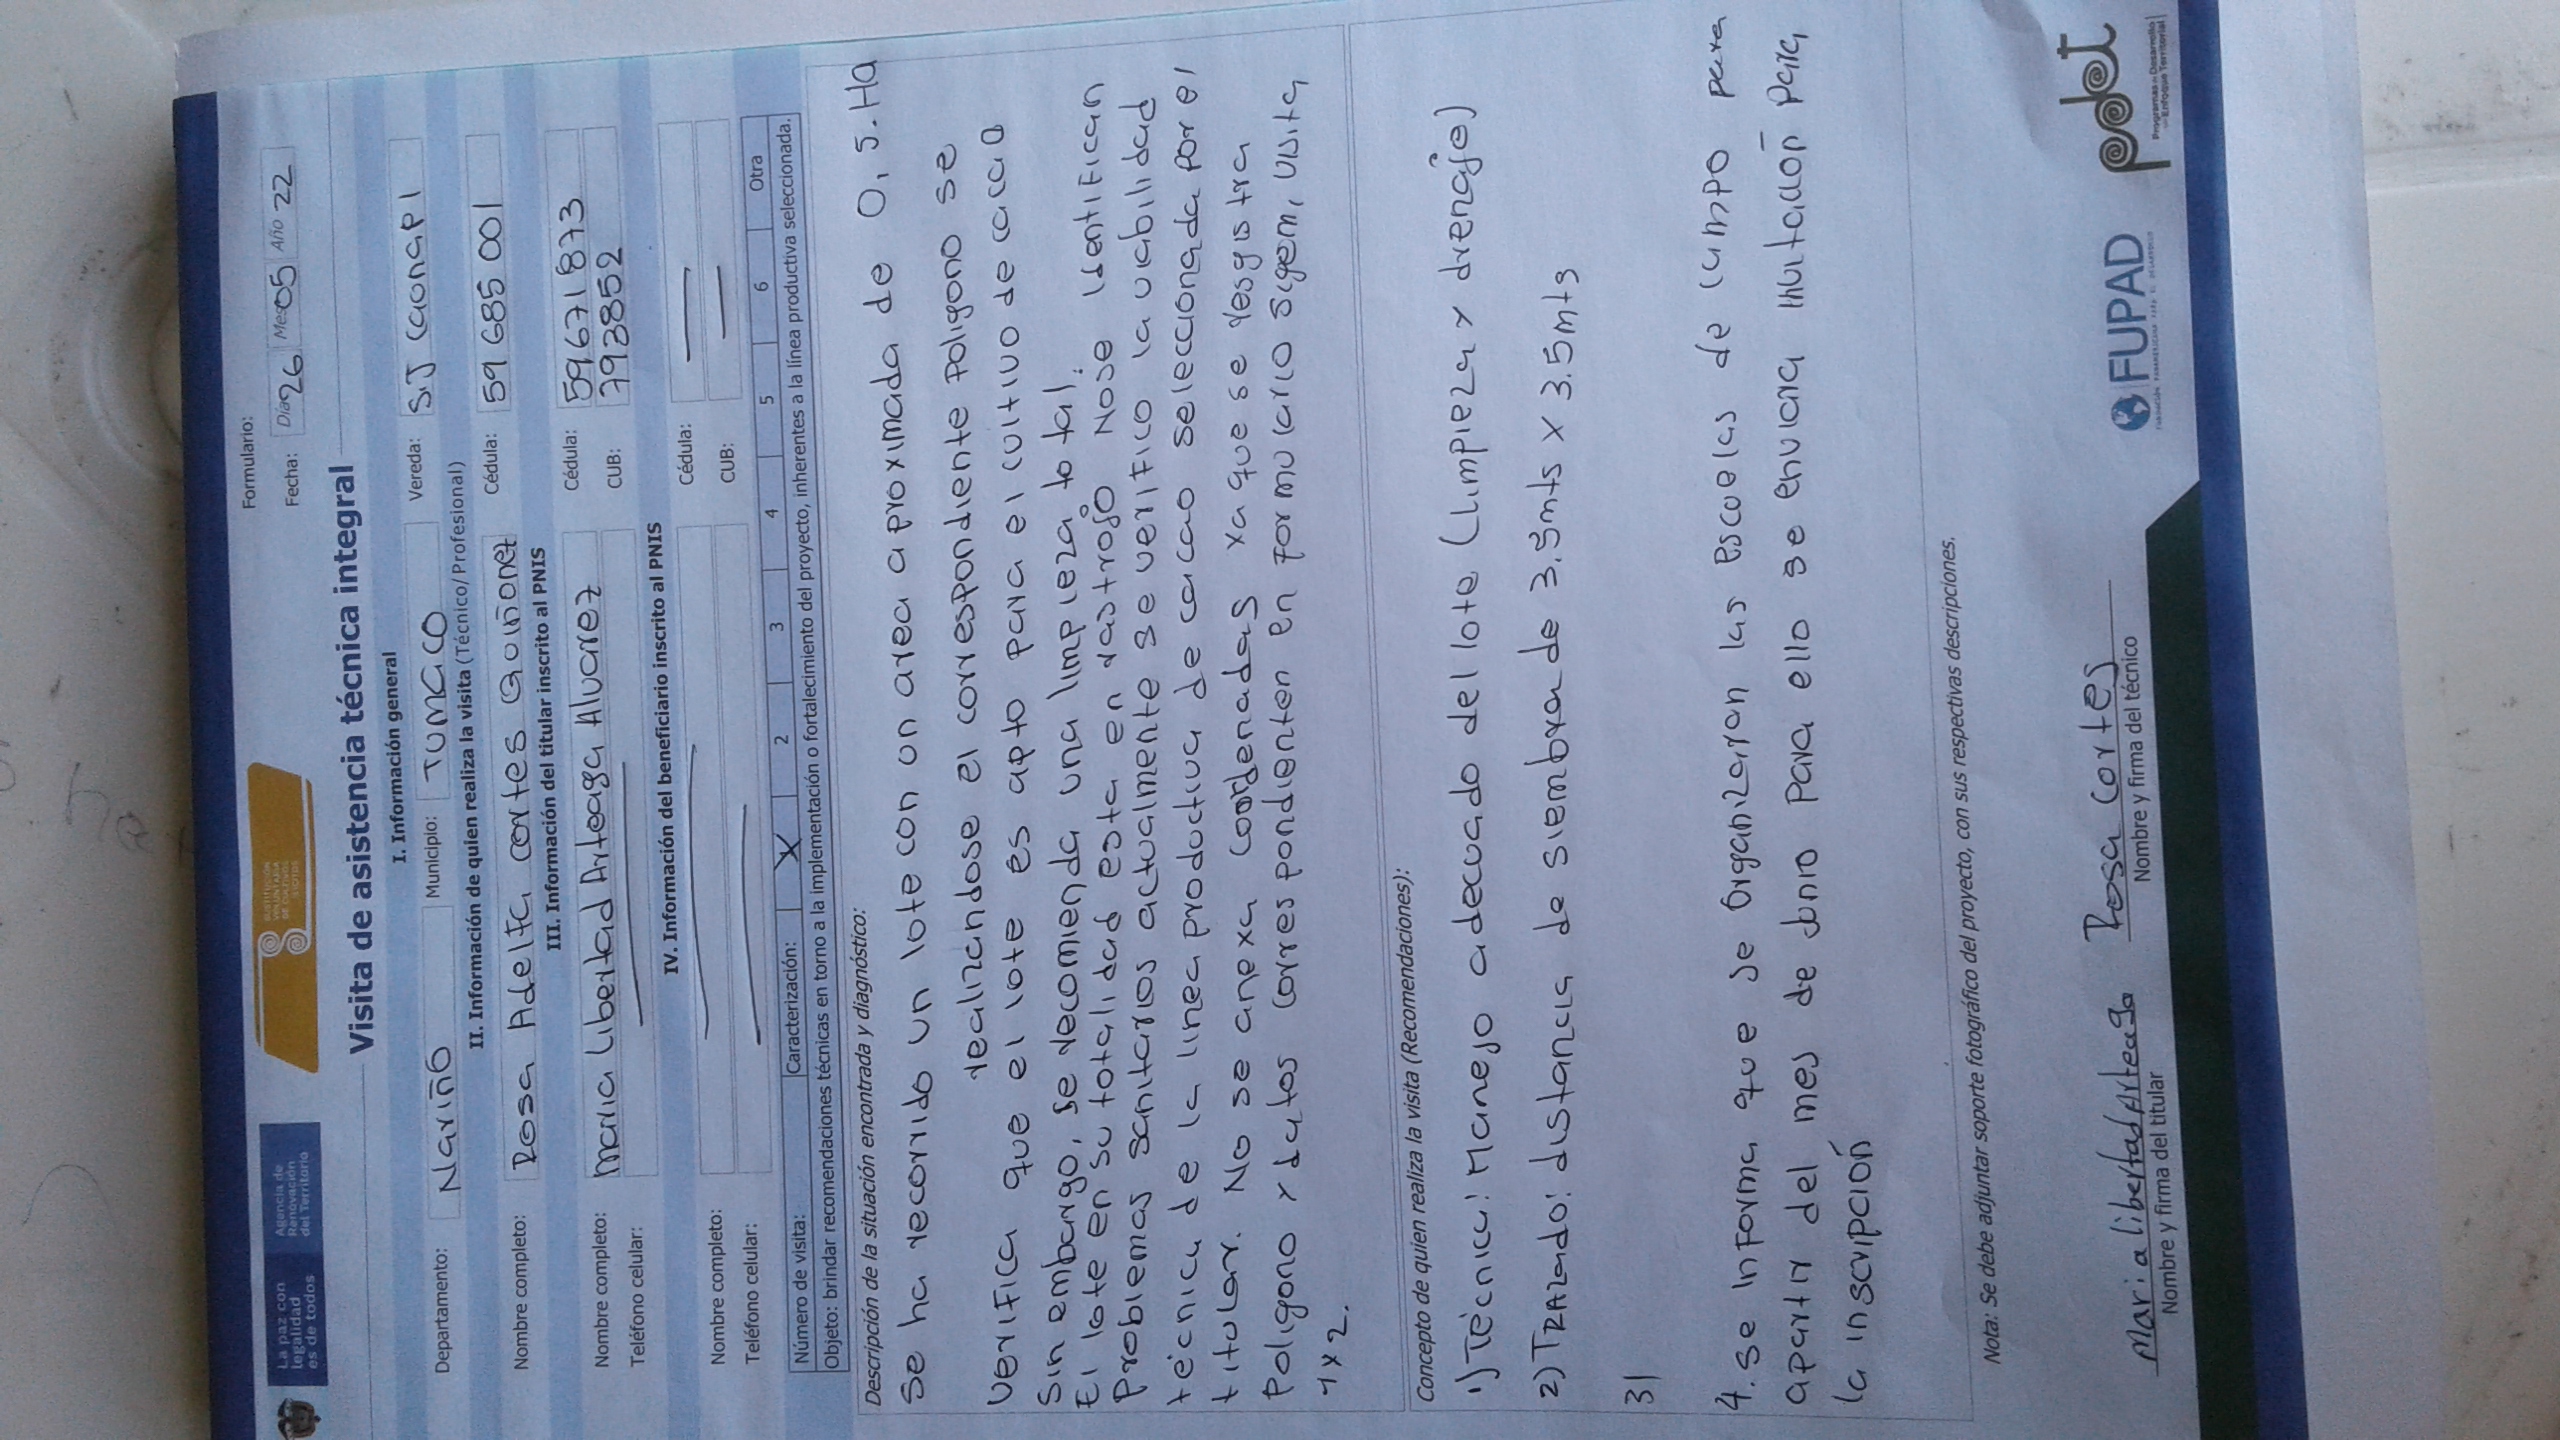 La paz con
legalidad
es de todos
Agencia de
Renovación
del Territorio
SUSTITUCIÓN
VOLUNTARIA
DE CULTIVOS
ILÍCITOS
Formulario:
Fecha: Día 26 Mes 05 Año 22
Visita de asistencia técnica integral
I. Información general
Departamento: Nariño Municipio: TUMACO Vereda: S.J Caunapi
II. Información de quien realiza la visita (Técnico/Profesional)
Nombre completo: Rosa Adelfa cortes Quiñonez Cédula: 59 685 001
III. Información del titular inscrito al PNIS
Nombre completo: maria Libertad Arteaga Alvarez Cédula: 59671873
Teléfono celular: — CUB: 793852
IV. Información del beneficiario inscrito al PNIS
Nombre completo: — Cédula: —
Teléfono celular: — CUB: —
Número de visita: Caracterización: X 2 3 4 5 6 Otra
Objeto: brindar recomendaciones técnicas en torno a la implementación o fortalecimiento del proyecto, inherentes a la línea productiva seleccionada.
Descripción de la situación encontrada y diagnóstico:
Se ha recorrido un lote con un area aproximada de 0,5.Ha
realizandose el correspondiente poligono se
verifica que el lote es apto para el cultivo de cacao
Sin embargo, se recomienda una limpieza total.
El lote en su totalidad esta en rastrojo Nose identifican
Problemas sanitarios actualmente se verifico la viabilidad
técnica de la linea productiva de cacao seleccionada por el
titular. No se anexa coordenadas ya que se resgistra
Poligono y datos correspondienten en formulario sygem, visita
1 y 2.
Concepto de quien realiza la visita (Recomendaciones):
1) Técnica: Manejo adecuado del lote (limpieza y drenaje)
2) TRAzado: distancia de siembra de 3.5mts x 3.5mts
3)
4. se informa que se organizaran las escuelas de campo para
apartir del mes de Junio Para ello se enviara invitación para
la inscripción
Nota: Se debe adjuntar soporte fotográfico del proyecto, con sus respectivas descripciones.
Maria libertad Arteaga
Nombre y firma del titular
Rosa Cortes
Nombre y firma del técnico
FUPAD
pdet
Programas de Desarrollo
con Enfoque Territorial